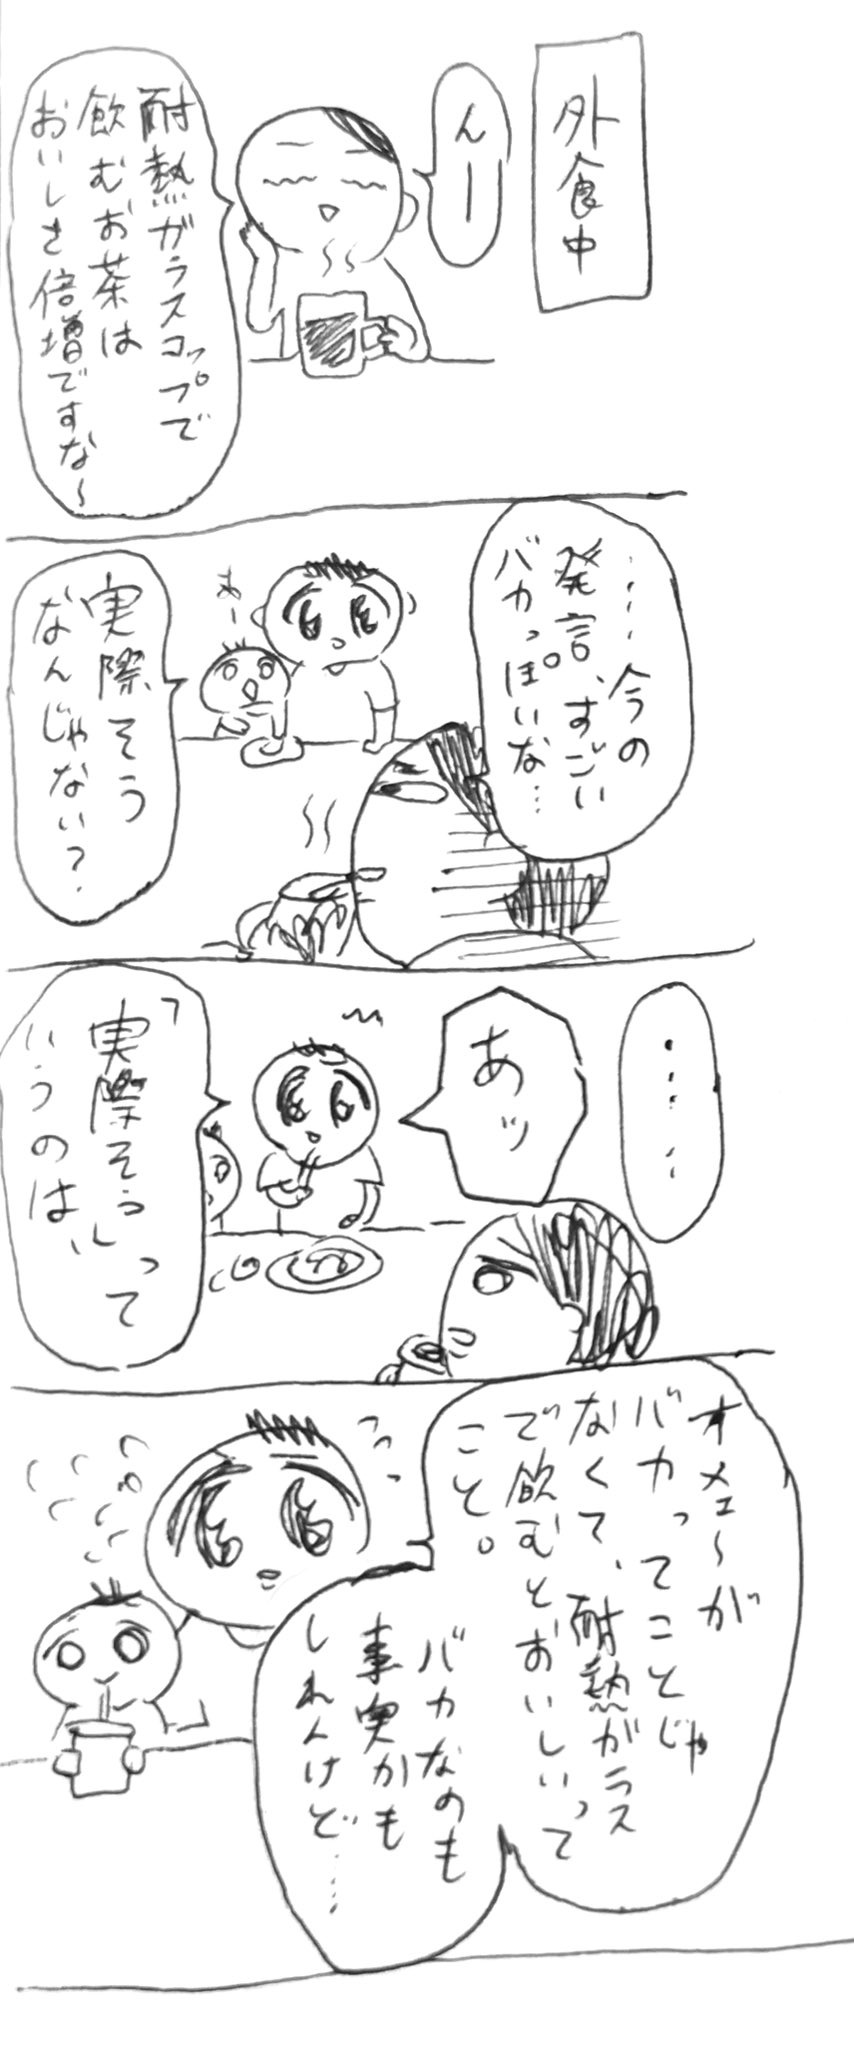 外食中
んー
耐熱ガラスコップで
飲むお茶は
おいしさ倍増ですな～
……今の
発言、すごい
バカっぽいな…
あー
実際そう
なんじゃない？
……
あッ
「実際そう」って
いうのは、
オメェ～が
バカってことじゃ
なくて、耐熱ガラス
で飲むとおいしいって
こと。
バカなのも
事実かも
しれんけど……